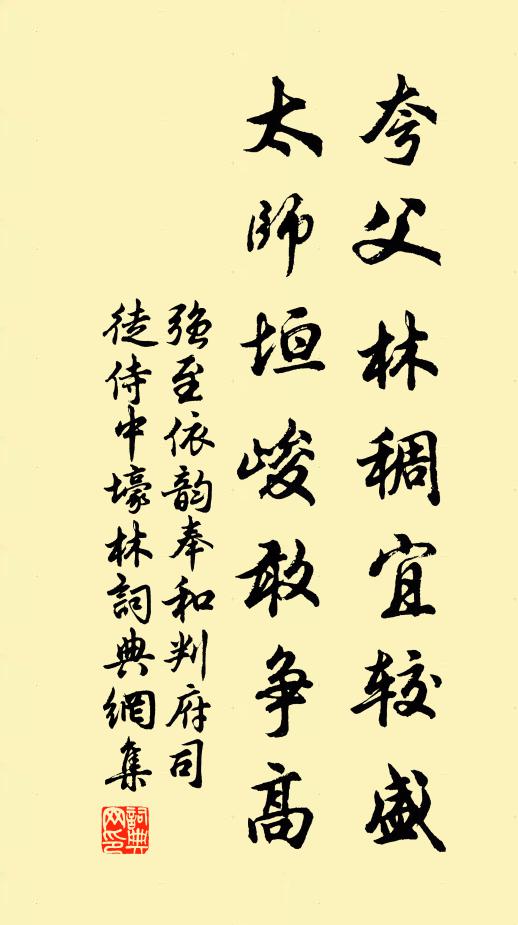 夸父林稠宜较盛
太師垣峻敢争高
强至依韵奉和判府司
徒侍中壕林詞典網集
詞典網印